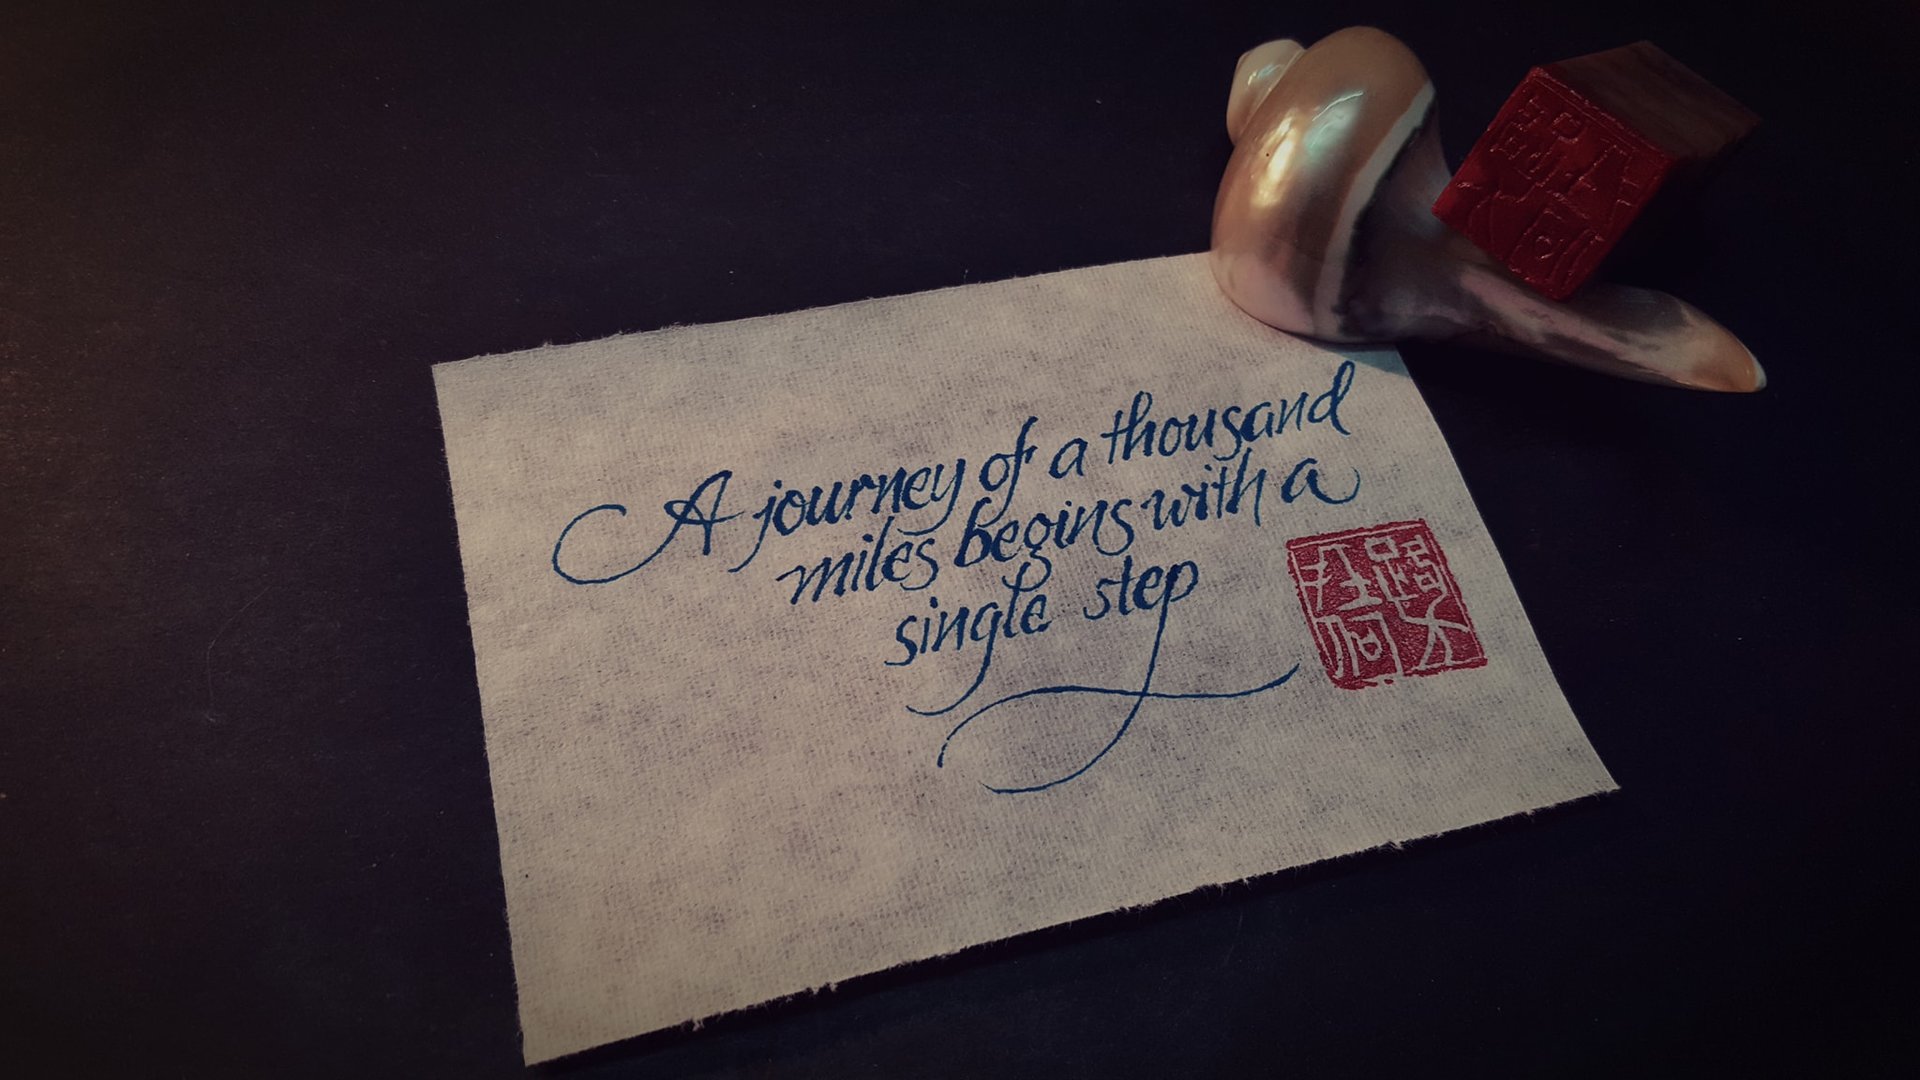 A journey of a thousand
miles begins with a
single step